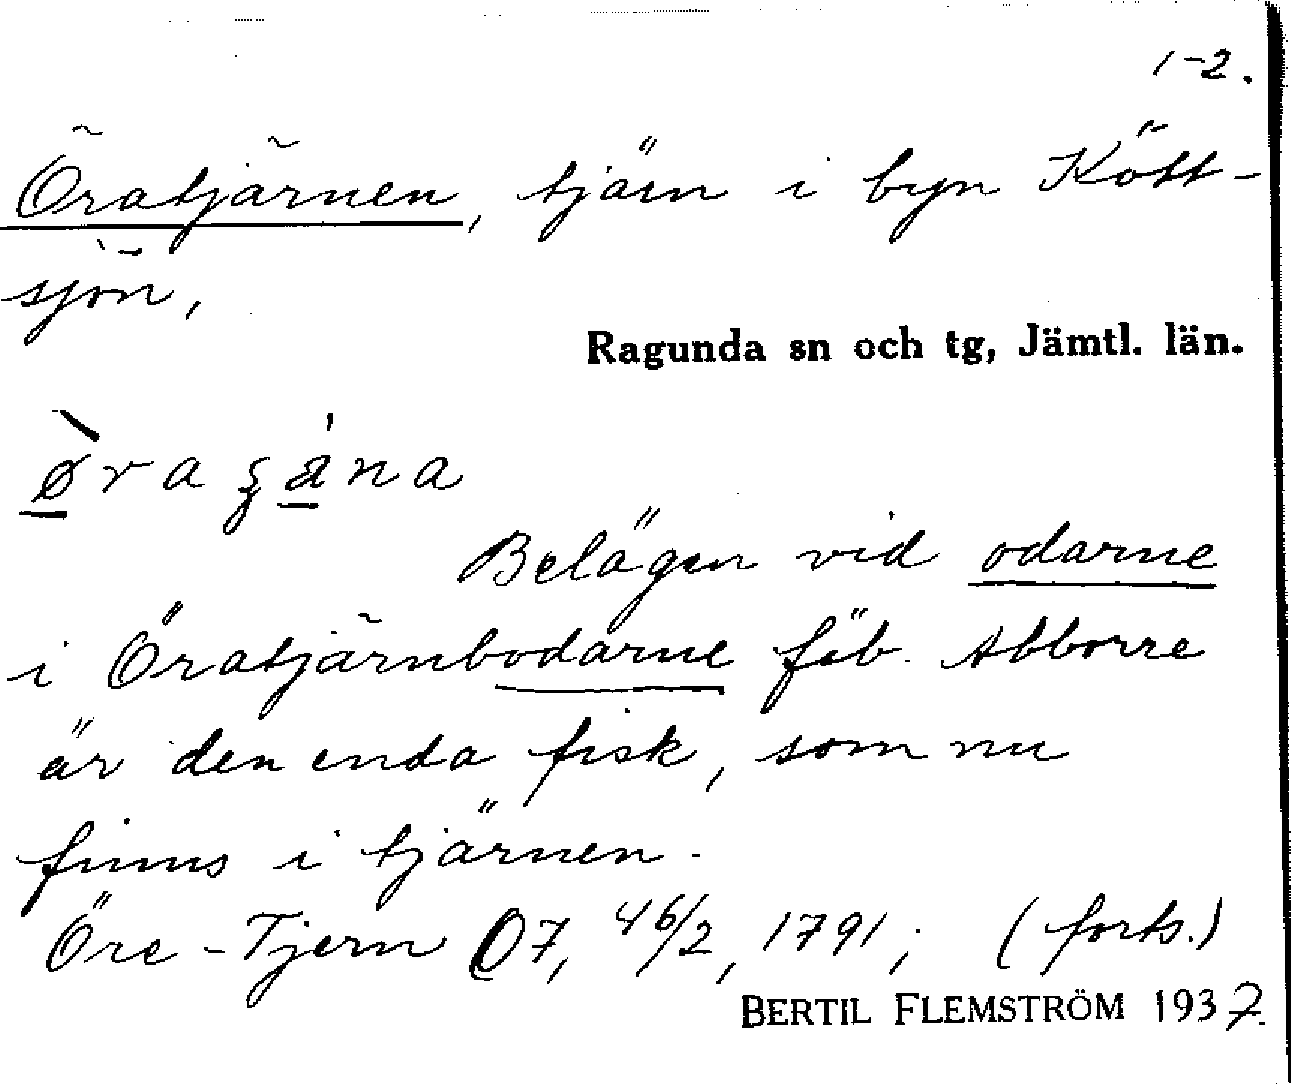 1-2.
Öratjärnen, tjärn i byn Kött-
sjön,
Ragunda sn och tg, Jämtl. län.
Belägen vid odarne
i Öratjärnbodarne fäb. Abborre
är den enda fisk, som nu
finns i tjärnen.
Öre-Tjern O7, 46/2, 1791; (forts.)
BERTIL FLEMSTRÖM 1937.